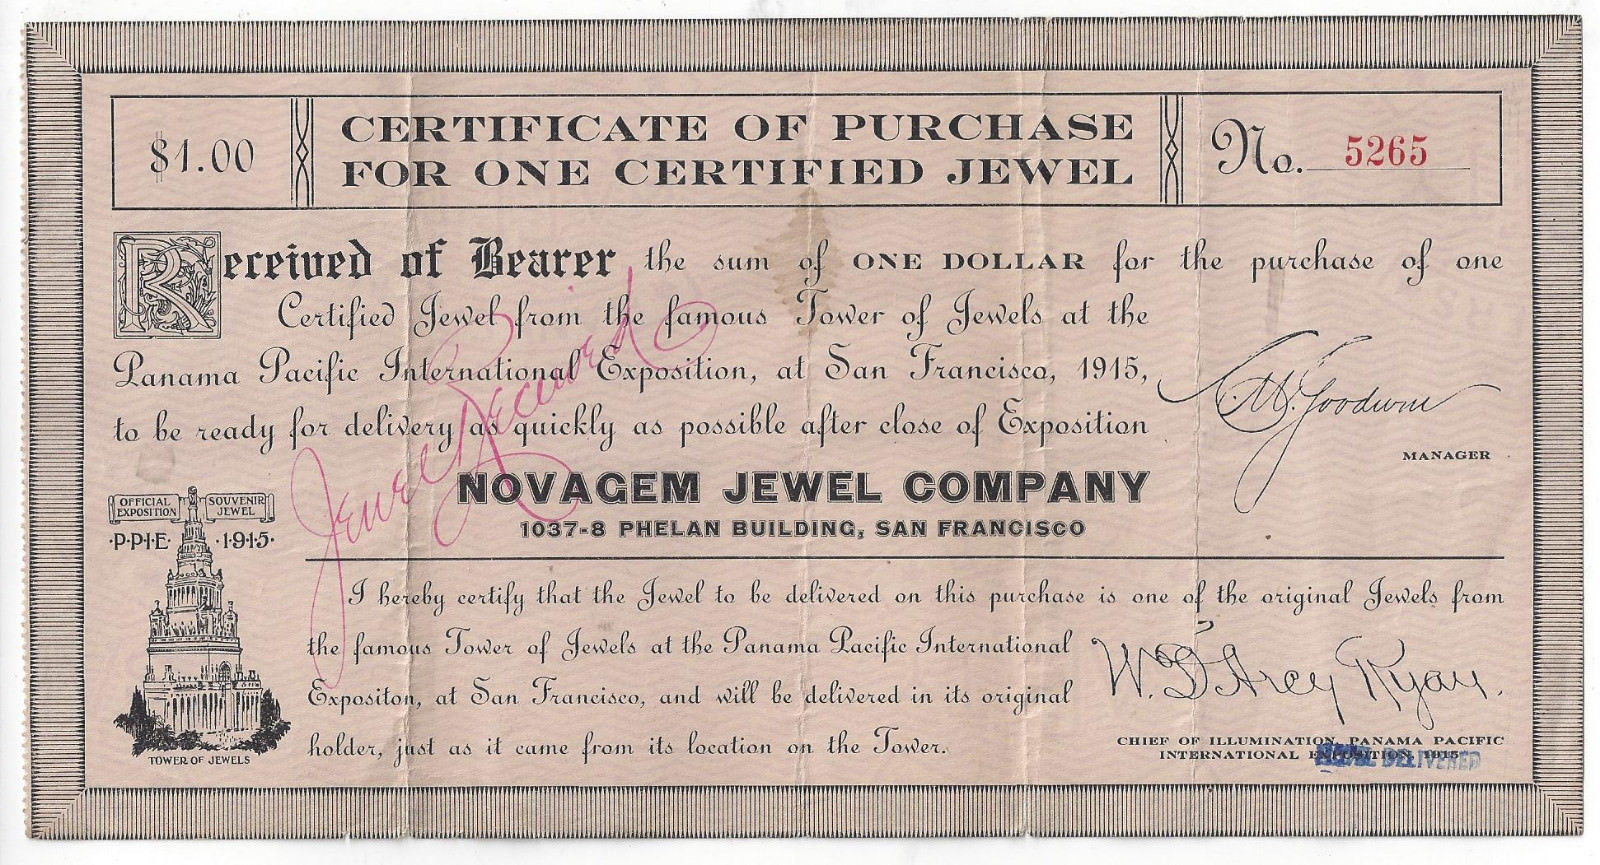 $1.00
CERTIFICATE OF PURCHASE
FOR ONE CERTIFIED JEWEL
No. 5265
Received of Bearer the sum of ONE DOLLAR for the purchase of one
Certified Jewel from the famous Tower of Jewels at the
Panama Pacific International Exposition, at San Francisco, 1915,
to be ready for delivery as quickly as possible after close of Exposition
Jewel Received
C.M. Goodwin
MANAGER
NOVAGEM JEWEL COMPANY
1037-8 PHELAN BUILDING, SAN FRANCISCO
OFFICIAL EXPOSITION SOUVENIR JEWEL
·P·P·I·E· ·1·9·1·5·
TOWER OF JEWELS
I hereby certify that the Jewel to be delivered on this purchase is one of the original Jewels from
the famous Tower of Jewels at the Panama Pacific International
Expositon, at San Francisco, and will be delivered in its original
holder, just as it came from its location on the Tower.
W. D'Arcy Ryan.
CHIEF OF ILLUMINATION, PANAMA PACIFIC
INTERNATIONAL EXPOSITION, 1915
JEWEL DELIVERED